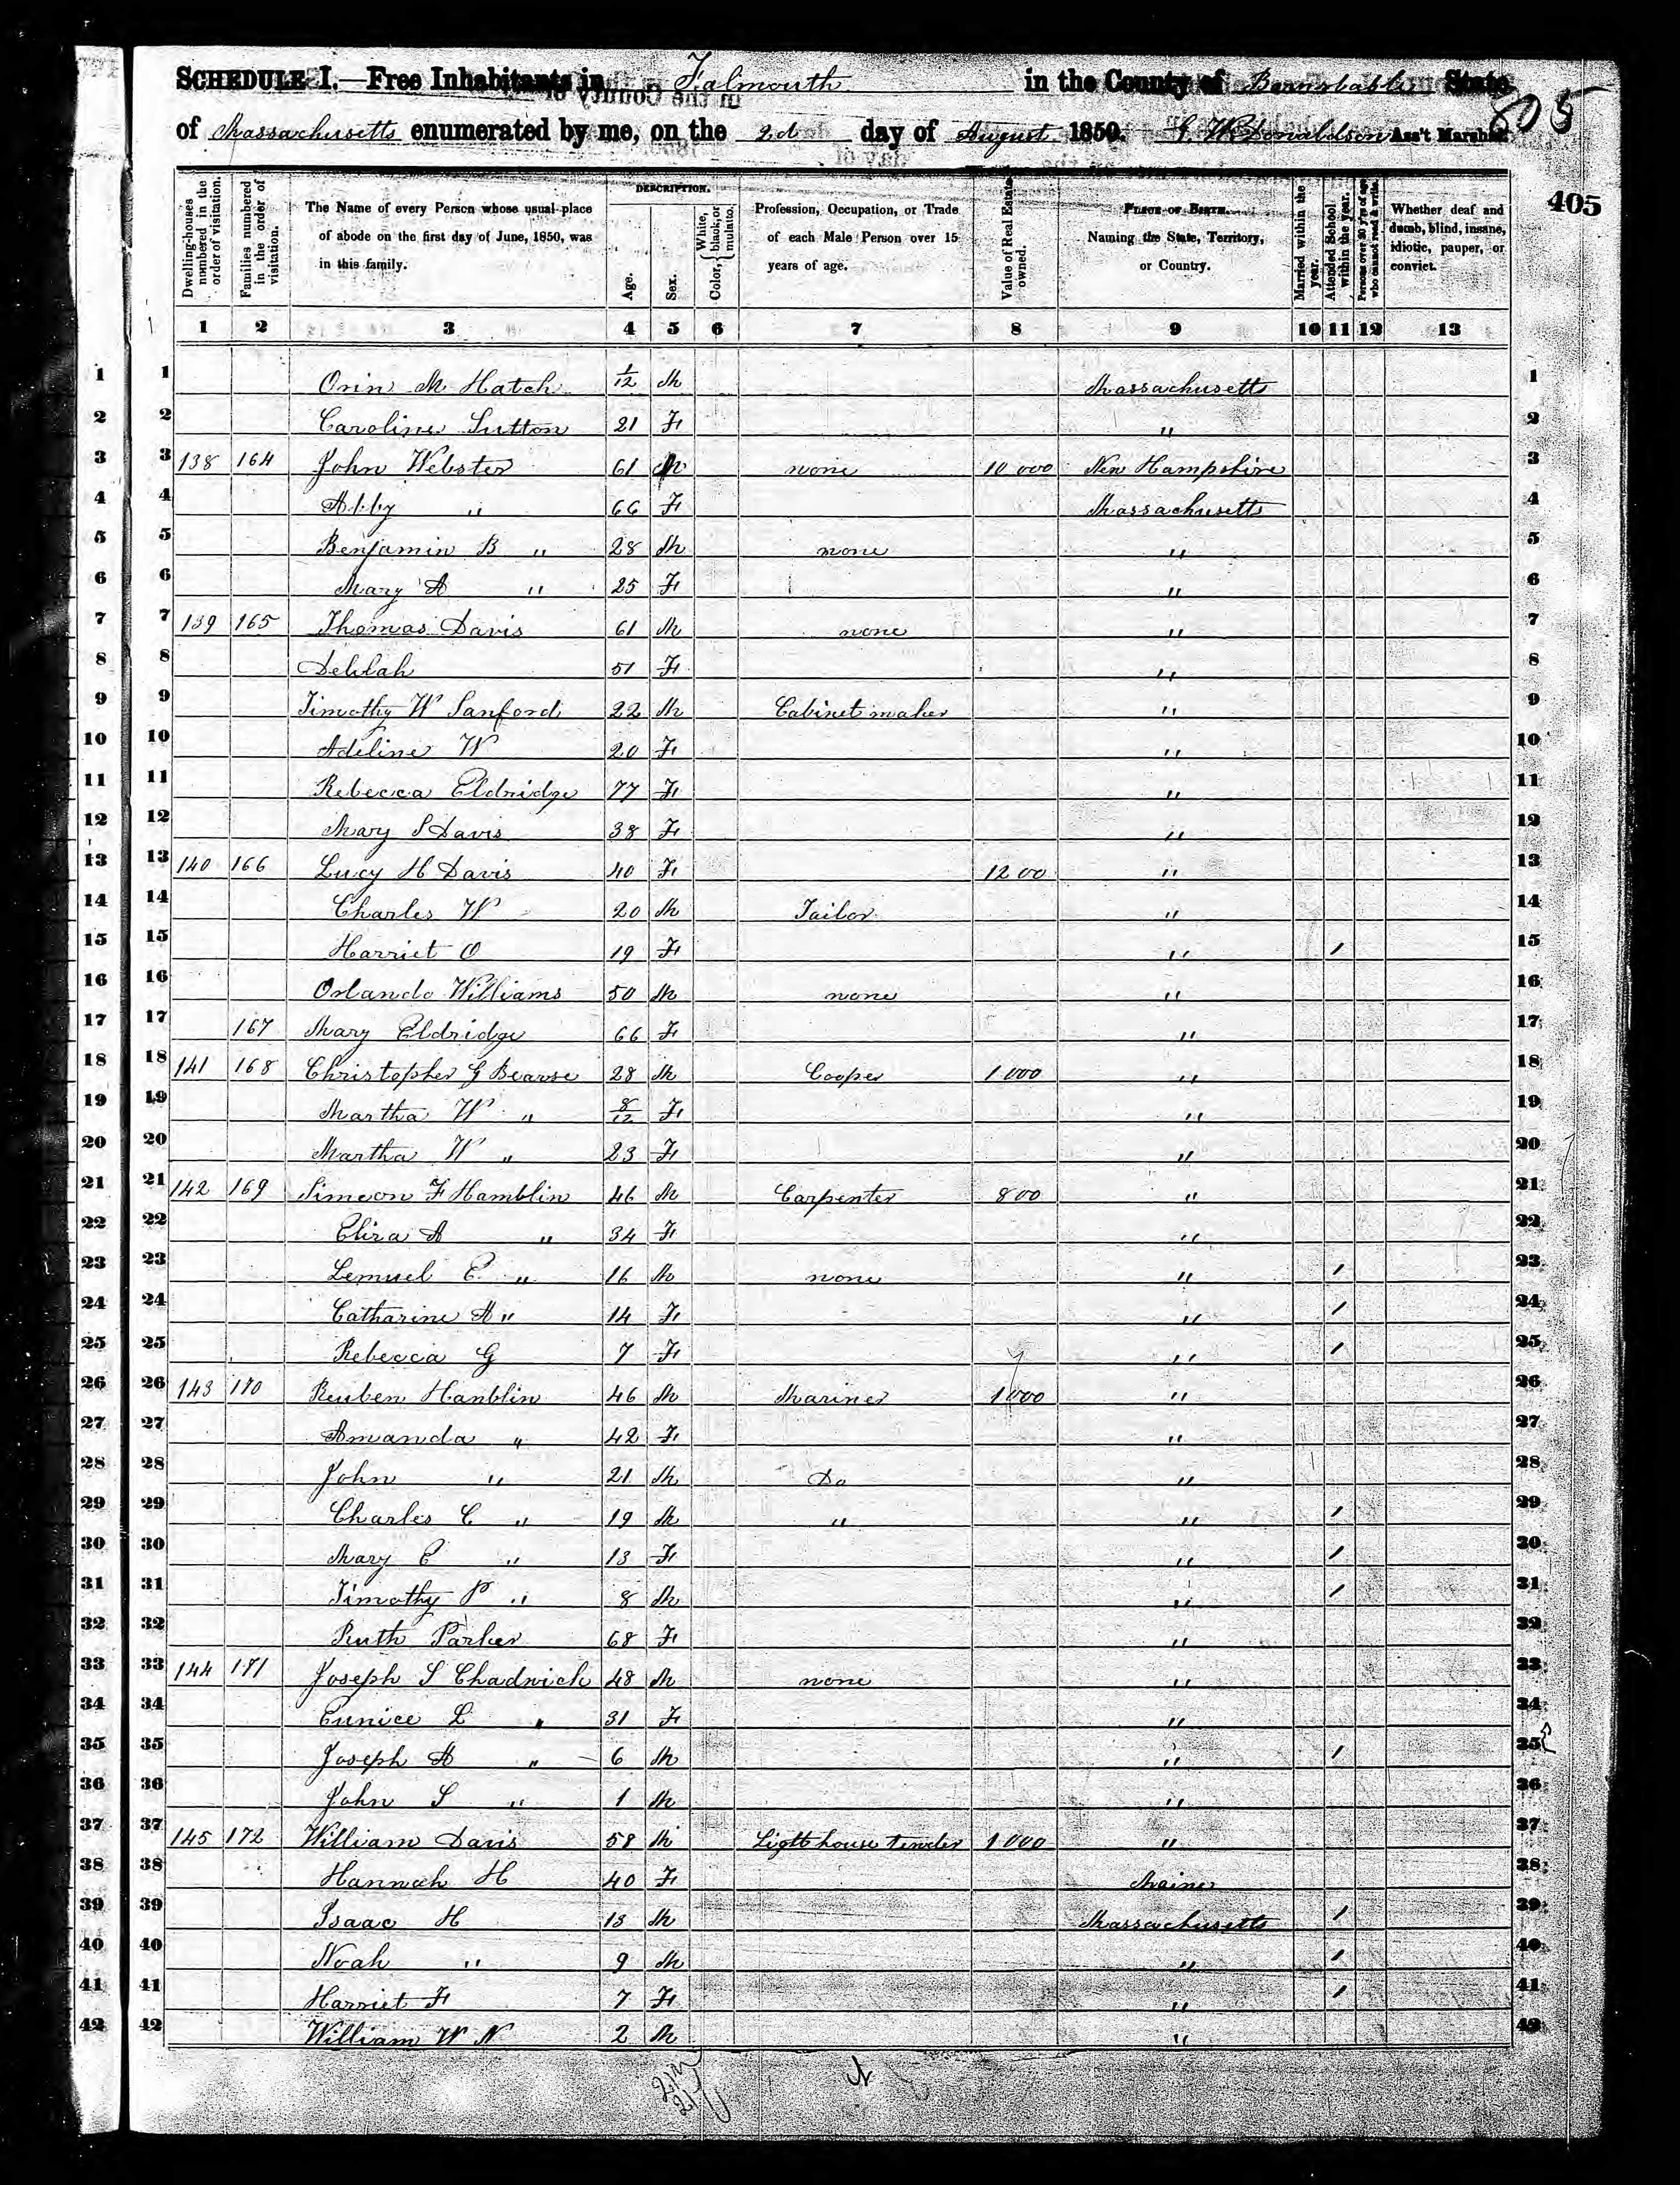 SCHEDULE I.—Free Inhabitants in Falmouth in the County of Barnstable State
805
of Massachusetts enumerated by me, on the 2d day of August 1850. Donaldson Ass't Marshal.
405
Dwelling-houses numbered in the order of visitation.
Families numbered in the order of visitation.
The Name of every Person whose usual place of abode on the first day of June, 1850, was in this family.
DESCRIPTION.
Age.
Sex.
Color, { White, black, or mulatto.
Profession, Occupation, or Trade of each Male Person over 15 years of age.
Value of Real Estate owned.
PLACE OF BIRTH. Naming the State, Territory, or Country.
Married within the year.
Attended School within the year.
Persons over 20 y'rs of age who cannot read & write.
Whether deaf and dumb, blind, insane, idiotic, pauper, or convict.
1 2 3 4 5 6 7 8 9 10 11 12 13
1 1 Orin M Hatch 1/12 M Massachusetts 1
2 2 Caroline Sutton 21 F " 2
3 3 138 164 John Webster 61 M none 10 000 New Hampshire 3
4 4 Abby " 66 F Massachusetts 4
5 5 Benjamin B " 28 M none " 5
6 6 Mary A " 25 F " 6
7 7 139 165 Thomas Davis 61 M none " 7
8 8 Delilah 51 F " 8
9 9 Timothy W Sanford 22 M Cabinet maker " 9
10 10 Adeline W 20 F " 10
11 11 Rebecca Eldridge 77 F " 11
12 12 Mary S Davis 38 F " 12
13 13 140 166 Lucy H Davis 40 F 1200 " 13
14 14 Charles W 20 M Tailor " 14
15 15 Harriet O 19 F " / 15
16 16 Orlando Williams 50 M none " 16
17 17 167 Mary Eldridge 66 F " 17
18 18 141 168 Christopher G Bearse 28 M Cooper 1000 " 18
19 19 Martha W " 8/12 F " 19
20 20 Martha W " 23 F " 20
21 21 142 169 Simeon F Hamblin 46 M Carpenter 800 " 21
22 22 Eliza A " 34 F " 22
23 23 Lemuel E " 16 M none " / 23
24 24 Catharine A " 14 F " / 24
25 25 Rebecca G 7 F " / 25
26 26 143 170 Reuben Hanblin 46 M Mariner 1000 " 26
27 27 Amanda " 42 F " 27
28 28 John " 21 M Do " 28
29 29 Charles C " 19 M " " / 29
30 30 Mary E " 13 F " / 30
31 31 Timothy P " 8 M " / 31
32 32 Ruth Parker 68 F " 32
33 33 144 171 Joseph S Chadwick 48 M none " 33
34 34 Eunice L " 31 F " 34
35 35 Joseph A " 6 M " / 35
36 36 John S " 1 M " 36
37 37 145 172 William Davis 58 M Light house tender 1000 " 37
38 38 Hannah H 40 F Maine 38
39 39 Isaac H 13 M Massachusetts / 39
40 40 Noah " 9 M " / 40
41 41 Harriet F 7 F " / 41
42 42 William W N 2 M " 42